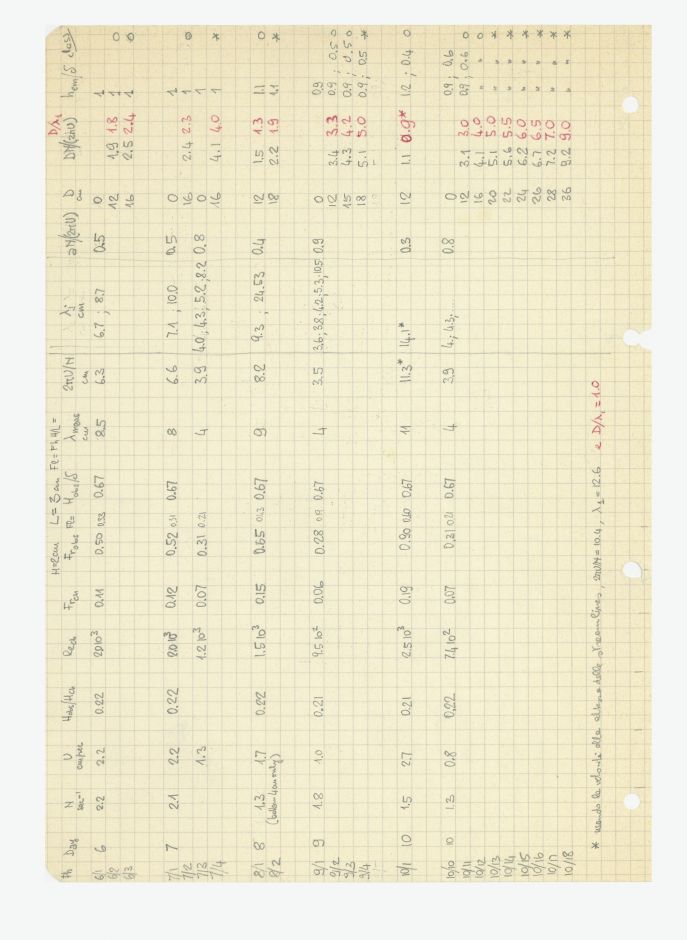 H=2cm L = 3 cm Fl = Fh H/L =
th Day N sec⁻¹ U cm/sec Hobs/Hch Rech Frch Frobs Fl= Hobs/δ λmeas cm 2πU/N cm λj cm aN/(2πU) D cm DN/(2πU) D/λ1 hem/δ class
6/1 6 2.2 2.2 0.22 2.0 10³ 0.11 0.50 0.33 0.67 8.5 6.3 6.7 ; 8.7 0.5 0 1
6/2 12 1.9 1.8 1 O
6/3 16 2.5 2.4 1
7/1 7 2.1 2.2 0.22 2.0 10³ 0.12 0.52 0.31 0.67 8 6.6 7.1 ; 10.0 0.5 0 1
7/2 16 2.4 2.3 1
7/3 1.3 1.2 10³ 0.07 0.31 0.21 4 3.9 4.0 ; 4.3 ; 5.2 ; 8.2 0.8 0 1
7/4 16 4.1 4.0 1 *
8/1 8 1.3 1.7 0.22 1.5 10³ 0.15 0.65 0.43 0.67 9 8.2 9.3 ; 24.53 0.4 12 1.5 1.3 1.1 O
8/2 (bottom 4 cm only) 18 2.2 1.9 1.1 *
9/1 9 1.8 1.0 0.21 9.5 10² 0.06 0.28 0.67 4 3.5 3.6; 3.8; 4.2; 5.3; 10.5 0.9 0 0.9
9/2 12 3.4 3.3 0.9 ; 0.5 O
9/3 15 4.3 4.2 0.9 ; 0.5 O
9/4 18 5.1 5.0 0.9 ; 0.5 *
10/1 10 1.5 2.7 0.21 2.5 10³ 0.19 0.90 0.60 0.67 11 11.3* 14.1* 0.3 12 1.1 0.9* 1.2 ; 0.4 O
10/10 10 1.3 0.8 0.22 7.4 10² 0.07 0.31 0.21 0.67 4 3.9 4.; 4.3;.... 0.8 0 0.9 ; 0.6
10/11 12 3.1 3.0 0.9 ; 0.6 O
10/12 16 4.1 4.0 " " O
10/13 20 5.1 5.0 " " *
10/14 22 5.6 5.5 " " *
10/15 24 6.2 6.0 " " *
10/16 26 6.7 6.5 " " *
10/17 28 7.2 7.0 " " *
10/18 36 9.2 9.0 " " *
* usando la velocità alla altezza delle streamlines, 2πU/N = 10.4 , λ1 = 12.6 e D/λ1 = 1.0